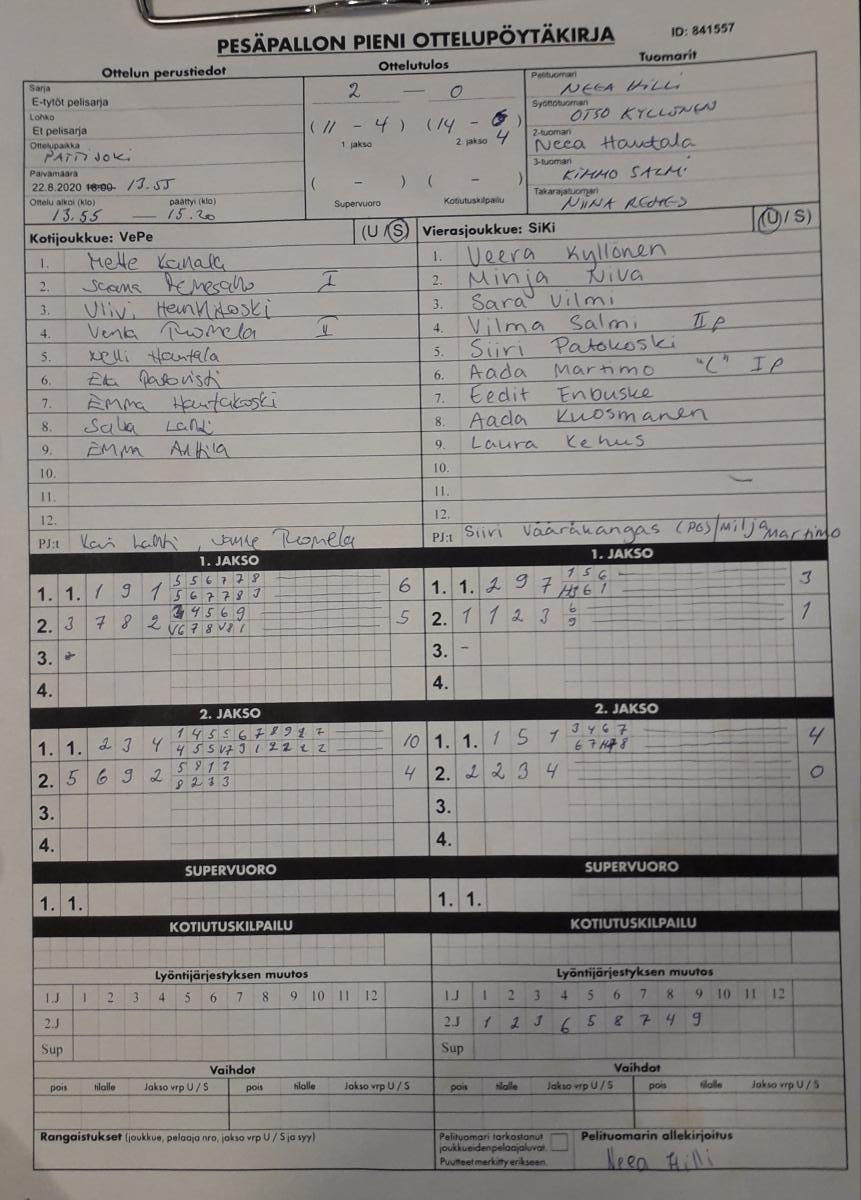 PESÄPALLON PIENI OTTELUPÖYTÄKIRJA ID: 841557
Ottelun perustiedot Ottelutulos Tuomarit
Sarja
E-tytöt pelisarja
Lohko
Et pelisarja
Ottelupaikka
PATTIJOKI
Päivämäärä
22.8.2020 16:00 13.55
Ottelu alkoi (klo) päättyi (klo)
13.55 — 15.20
2 — 0
(11 - 4) (14 - 4)
1. jakso 2. jakso
( - ) ( - )
Supervuoro Kotiutuskilpailu
Pelituomari
NEEA HILLI
Syöttötuomari
OTSO KYLLÖNEN
2-tuomari
Neea Hautala
3-tuomari
KIMMO SALMI
Takarajatuomari
NIINA
Kotijoukkue: VePe (U/S)
1. Mette Kanala
2. I
3.
4. Venla Tuomela II
5. Nelli Hautala
6.
7. EMMA Hautakoski
8. Lahti
9. EMMA Anttila
10.
11.
12.
PJ:t Kari Lahti, Tuomela
Vierasjoukkue: SiKi (U/S)
1. Veera Kyllönen
2. Minja Niva
3. Sara Vilmi
4. Vilma Salmi II P
5. Siiri Patokoski
6. Aada Martimo "C" I P
7. Eedit Enbuske
8. Aada Kuosmanen
9. Laura Kehus
10.
11.
12.
PJ:t Siiri Vääräkangas (PG)/Milja Martimo
1. JAKSO 1. JAKSO
1. 1. 1 9 1 5 5 6 7 7 8 6 1. 1. 2 9 7 1 5 6 3
5 6 7 7 8 3
2. 3 7 8 2 4 5 6 9 5 2. 1 1 2 3 6 1
V6 7 8 V8 1 9
3. - 3. -
4. 4.
2. JAKSO 2. JAKSO
1. 1. 2 3 4 10 1. 1. 1 5 1 3 4 6 7 4
2. 5 6 9 2 5 8 1 2 4 2. 2 2 3 4 0
8 2 3 3
3. 3.
4. 4.
SUPERVUORO SUPERVUORO
1. 1. 1. 1.
KOTIUTUSKILPAILU KOTIUTUSKILPAILU
Lyöntijärjestyksen muutos Lyöntijärjestyksen muutos
1.J 1 2 3 4 5 6 7 8 9 10 11 12 1.J 1 2 3 4 5 6 7 8 9 10 11 12
2.J 2.J 1 2 3 6 5 8 7 4 9
Sup Sup
Vaihdot Vaihdot
pois tilalle Jakso vrp U / S pois tilalle Jakso vrp U / S pois tilalle Jakso vrp U / S pois tilalle Jakso vrp U / S
Rangaistukset (joukkue, pelaaja nro, jakso vrp U / S ja syy)
Pelituomari tarkastanut
joukkueiden pelaajaluvat.
Puutteet merkitty erikseen.
Pelituomarin allekirjoitus
Neea Hilli